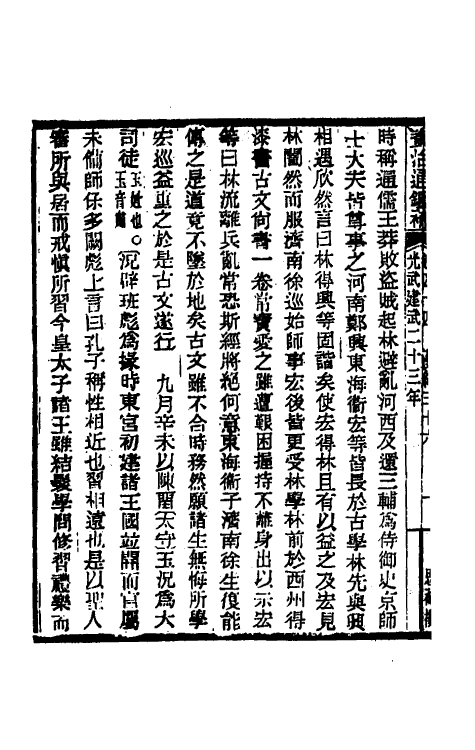 資治通鑑補
光武建武二十三年
時稱通儒王莽敗盜賊起林避亂河西及還三輔爲侍御史京師
士大夫皆尊事之河南鄭興東海衞宏等皆長於古學林先與興
相遇欣然言曰林得興等固諧矣使宏得林且有以益之及宏見
林闇然而服濟南徐巡始師事宏後皆更受林學林前於西州得
漆書古文尙書一卷常寶愛之雖遭艱困握持不離身出以示宏
等曰林流離兵亂常恐斯經將絕何意東海衞子濟南徐生復能
傳之是道竟不墜於地矣古文雖不合時務然願諸生無悔所學
宏巡益重之於是古文遂行　九月辛未以陳畱太守玉況爲大
司徒玉姓也玉音肅○況辟班彪爲掾時東宮初建諸王國並開而官屬
未備師保多闕彪上言曰孔子稱性相近也習相遠也是以聖人
審所與居而戒愼所習今皇太子諸王雖結髮學問修習禮樂而